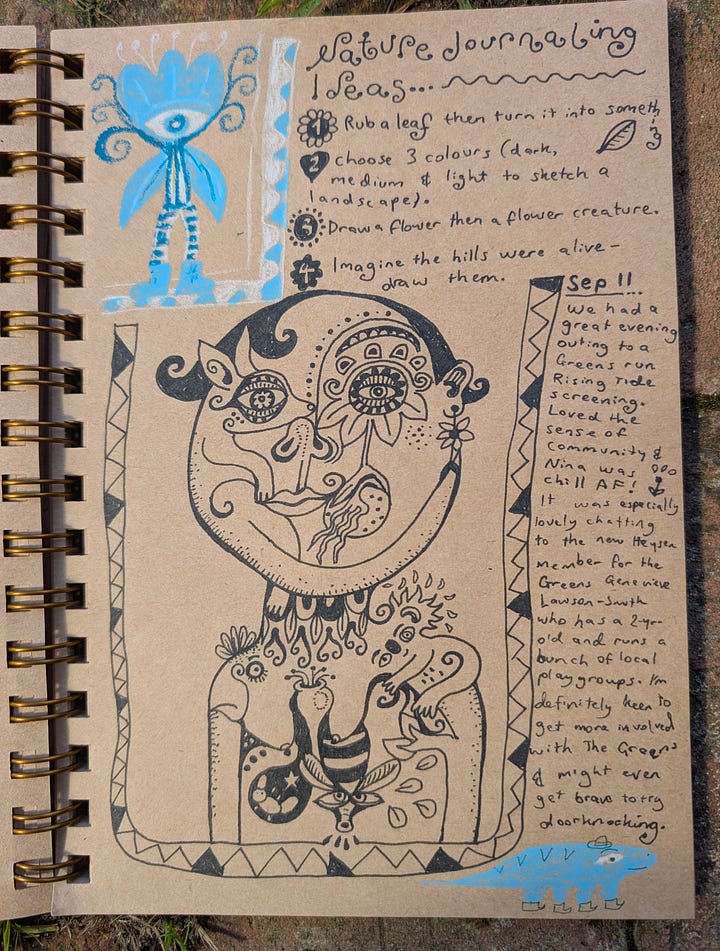 Nature Journaling
Ideas...
1 Rub a leaf then turn it into something
2 choose 3 colours (dark,
medium & light to sketch a
landscape).
3 Draw a flower then a flower creature.
4 Imagine the hills were alive -
draw them.
Sep 11
We had a
great evening
outing to a
Greens run
Rising Tide
screening.
Loved the
sense of
community &
Nina was
chill AF!
It was especially
lovely chatting
to the new Heysen
member for the
Greens Genevieve
Lawson-Smith
who has a 2-yr-
old and runs a
bunch of local
playgroups. I'm
definitely keen to
get more involved
with The Greens
& might even
get brave to try
doorknocking.